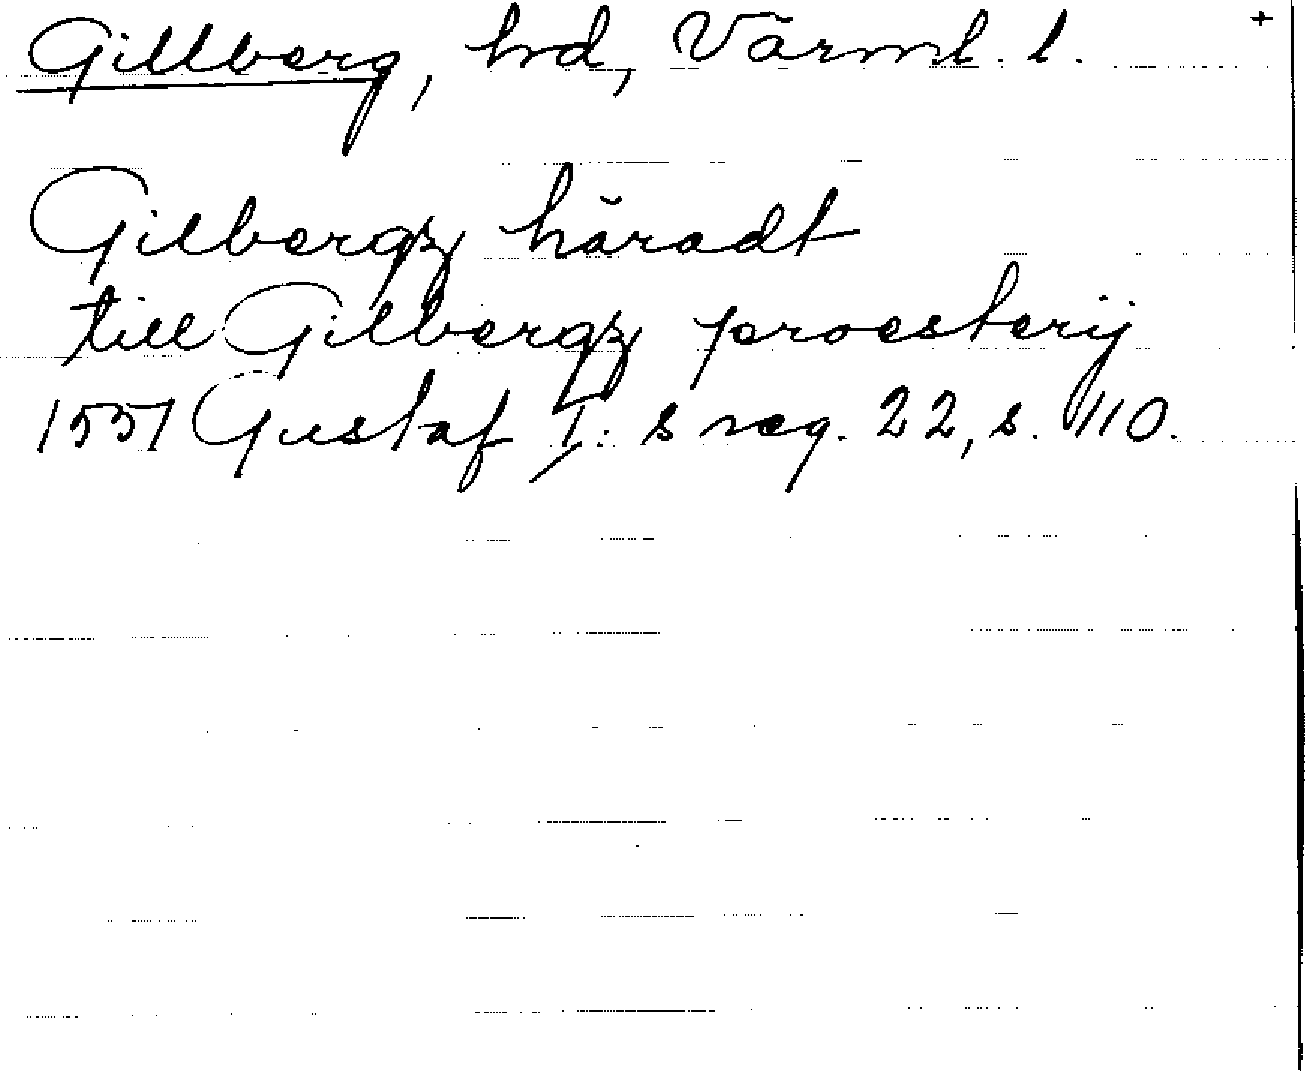 Gillberg, hrd, Värml. l. +
Gilbergz häradt
till Gilbergz proesterij
1551 Gustaf I:s reg. 22, s. 410.